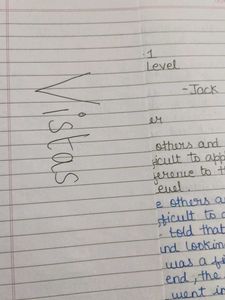 Vistas
:1
Level
- Jack
er
others and
ficult to app
ference to t
evel.
e others a
fficult to a
told that
nd lookin
was a f
end, the
went in